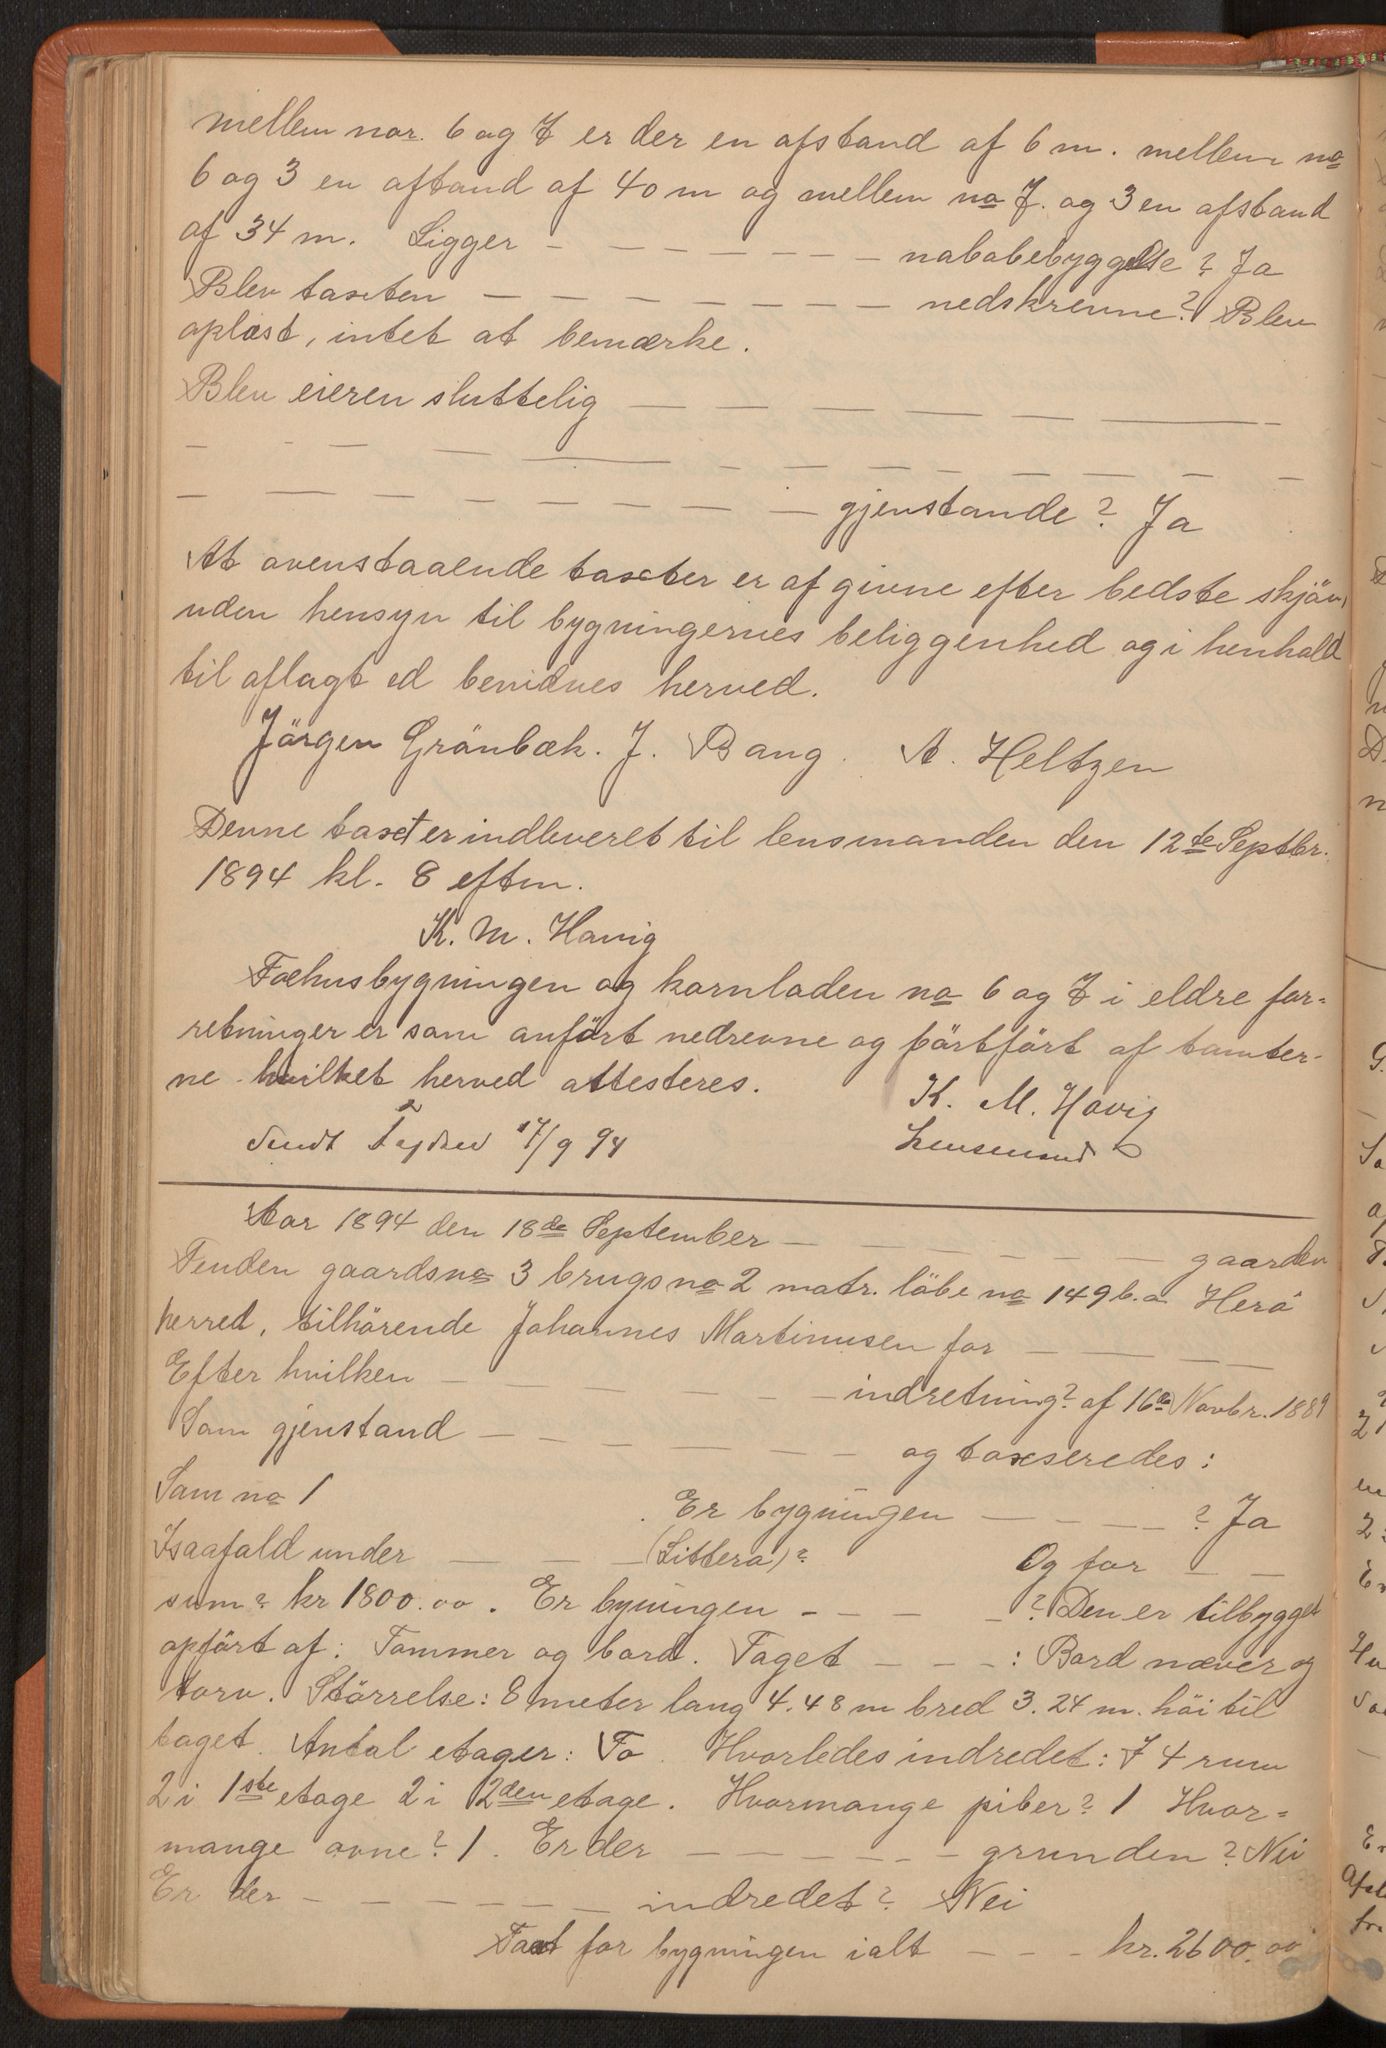 mellem nor. 6 og 7 er der en afstand af 6 m. mellem no
6 og 3 en aftand af 40 m og mellem no 7. og 3 en afstand
af 34 m. Ligger - - - - - - - nabobebyggelse? Ja
Blev taxten - - - - - - - - nedskrevne? Blev
oplæst, intet at bemærke.
Blev eieren sluttelig - - - - - - -
- - - - - - - - - - - - -
- - - - - - - - gjenstande? Ja
At ovenstaaende taxter er af givne efter bedste skjøn,
uden hensyn til bygningernes beliggenhed og i henhold
til aflagt ed bevidnes herved.
Jörgen Grönbæk. J. Bang. A. Heltzen
Denne taxt er indleveret til lensmanden den 12te Septbr.
1894 kl. 8 eftm.
K. M. Havig
Fæhusbygningen og kornladen no 6 og 7 i eldre for-
retninger er som anfört nedrevne og börtfört af tomter-
ne hvilket herved attesteres.
K. M. Havig
Sendt 17/9 94
Lensmand
Aar 1894 den 18de September - - - - - - gaarden
Tenden gaardsno 3 brugsno 2 matr. löbe no 149 b. a Herö
herred, tilhörende Johannes Martinusen for - - - -
Efter hvilken - - - - - - - indretning? af 16de Novbr. 1889
Som gjenstand - - - - - - - og taxseredes:
Som no 1 . Er bygningen - - - - ? Ja
Isaafald under - - - (Littera)? Og for - -
sum? kr 1800.00. Er byningen - - - - ? Den er tilbygget
opfört af: Tømmer og bord. Taget - - - : Bord næver og
torv. Störrelse: 8 meter lang 4.48 m bred 3.24 m. höi til
taget. Antal etager: To. Hvorledes indredet: I 4 rum
2 i 1ste etage 2 i 2den etage. Hvormange piber? 1 Hvor-
mange ovne? 1. Er der - - - - - - grunden? Nei
Er der - - - - - - indredet? Nei
Taxt for bygningen ialt - - - kr. 2600.00